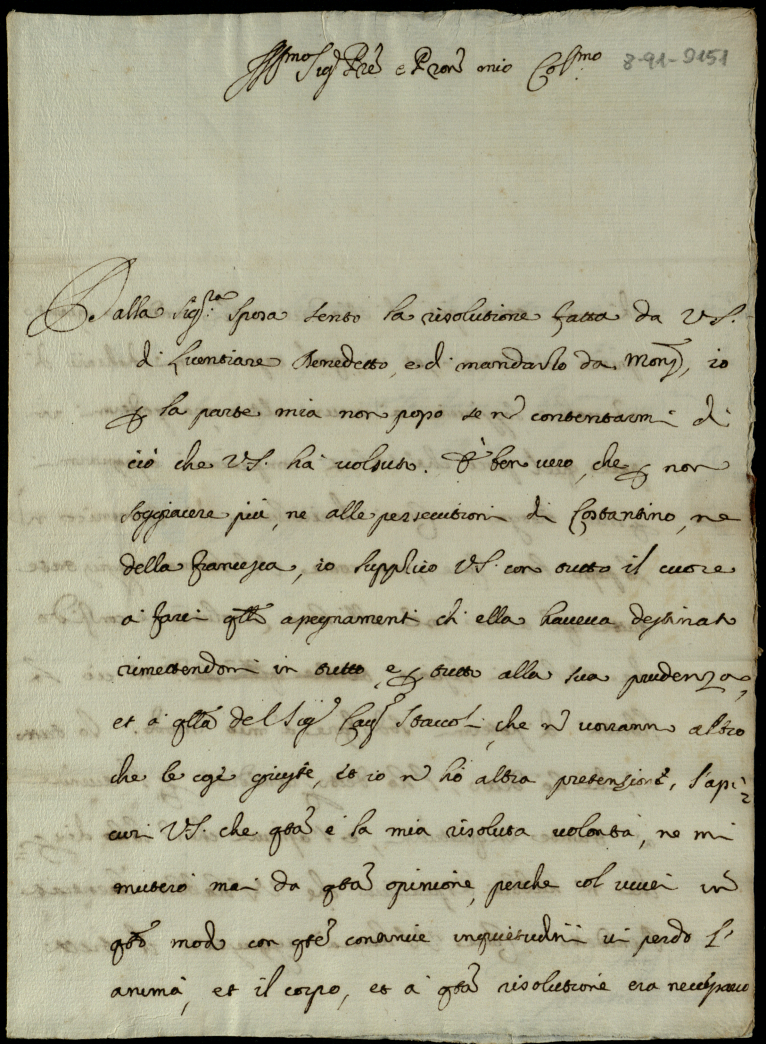 Illmo Sigr Pre e Pron mio Colmo 8-91-9151
Dalla Sigra Sposa sento la risolutione fatta da VS.
di licentiare Benedetto, e di mandarlo da Monr, io
p la parte mia non posso se nō contentarmi di
ciò che VS. hà volsuto. È ben vero, che p non
soggiacere più, ne alle persecutioni di Costantino, ne
della Francesca, io supplico VS. con tutto il cuore
a farci qlli assegnamenti ch ella haveva destinato
rimettendomi in tutto, e p tutto alla sua prudenza,
et a qlla del Sigr Cavr Staccoli, che nō vorranno altro
che le cose giuste, et io nō hò altra pretensione, s'assi=
curi VS. che qsta è la mia risoluta volontà, ne mi
muterò mai da qsta opinione, perche col viver in
qsto modo con qste continue inquietudini vi perdo l'
anima, et il corpo, et a qsta risolutione era necessario